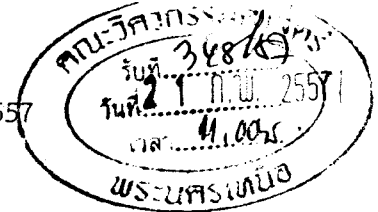 คณะวิศวกรรมศาสตร์
รับที่ 348/57
วันที่ 21 ก.พ. 2557
เวลา 11.00น.
พระนครเหนือ
57